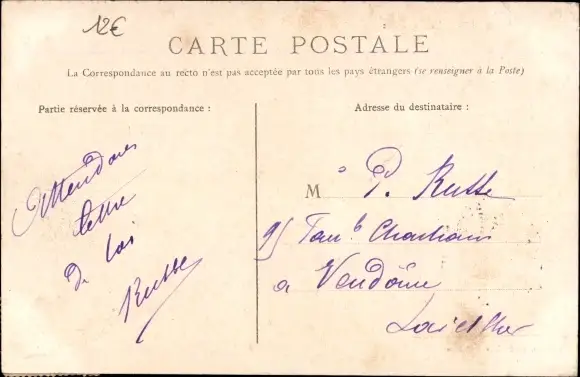 12€
CARTE POSTALE
La Correspondance au recto n'est pas acceptée par tous les pays étrangers (se renseigner à la Poste)
Partie réservée à la correspondance :
Adresse du destinataire :
Attendons
lettre
de toi
Russe
M P. Russe
95 Faub
a Vendôme
Loir et Cher